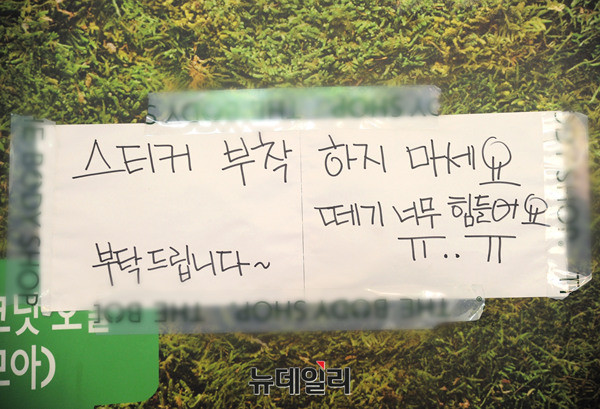 스티커 부착 하지 마세요
떼기 너무 힘들어요
부탁드립니다~
ㅠ..ㅠ
THE BODY SHOP
THE BODY SHOP
THE BODY SHOP
모아)
뉴데일리